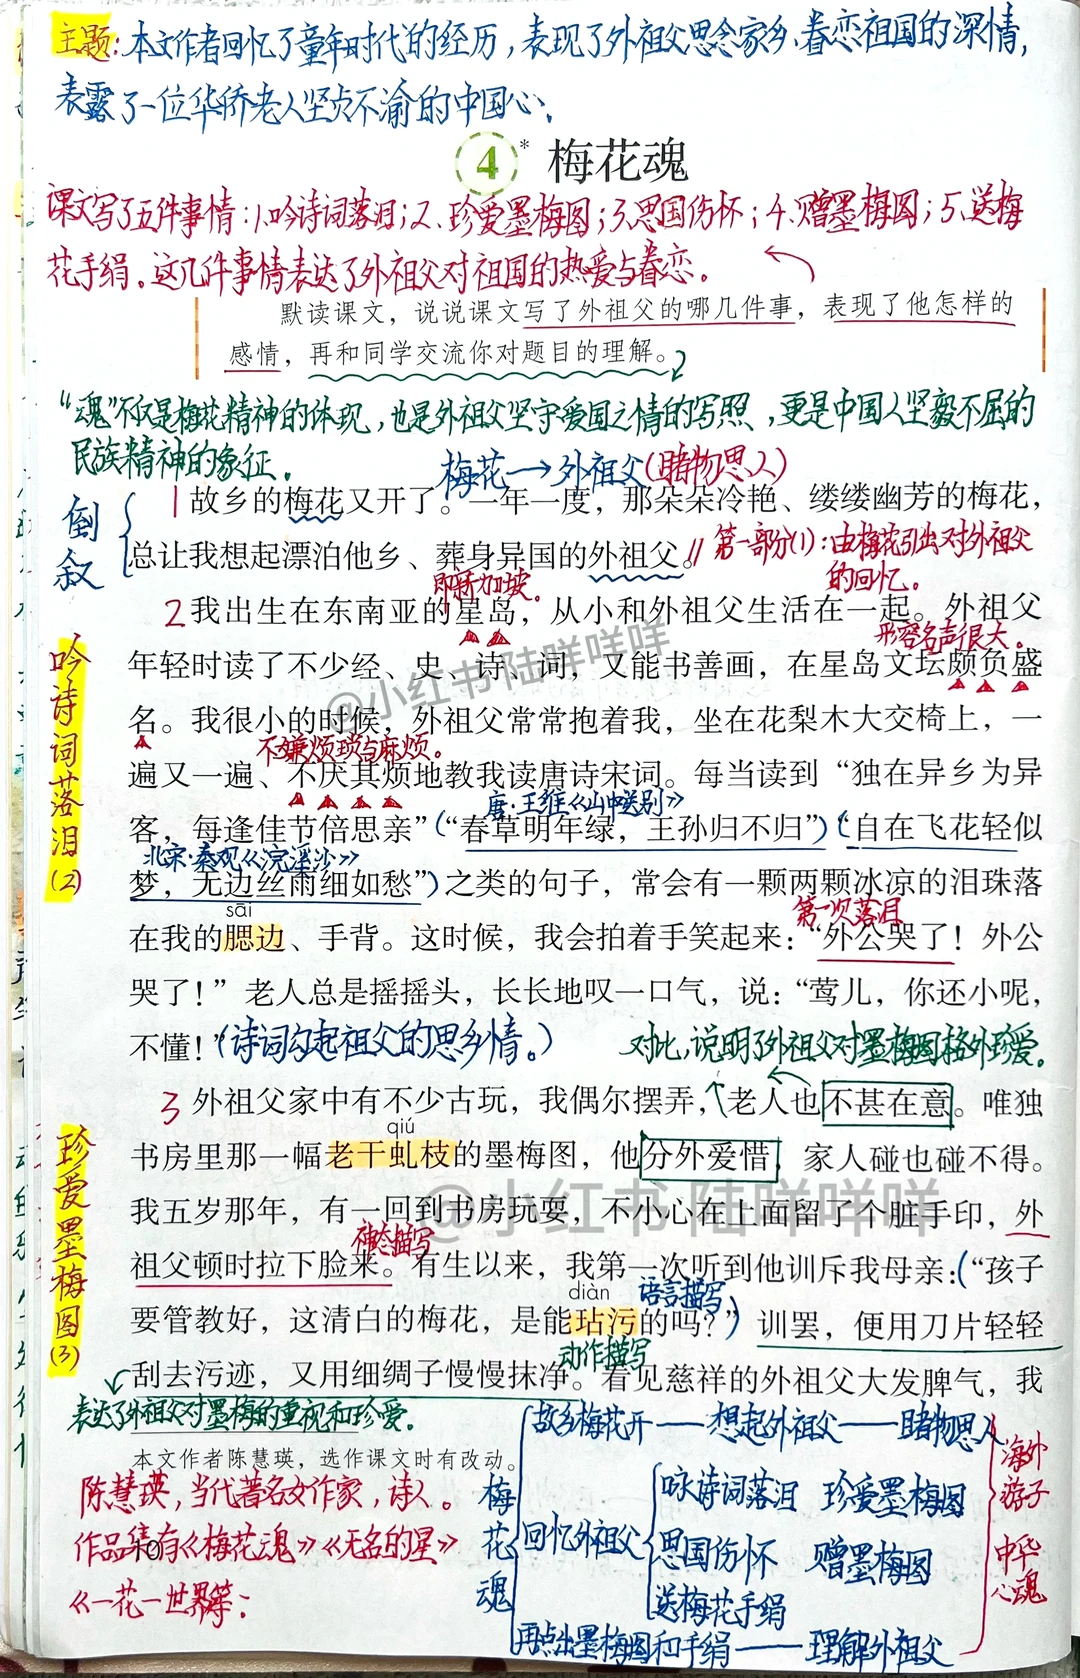 主题:本文作者回忆了童年时代的经历,表现了外祖父思念家乡、眷恋祖国的深情,
表露了一位华侨老人坚贞不渝的中国心.
4* 梅花魂
课文写了五件事情:1.吟诗词落泪;2.珍爱墨梅图;3.思国伤怀;4.赠墨梅图;5.送梅
花手绢。这几件事情表达了外祖父对祖国的热爱与眷恋。
默读课文，说说课文写了外祖父的哪几件事，表现了他怎样的
感情，再和同学交流你对题目的理解。
“魂”不仅是梅花精神的体现,也是外祖父坚守爱国之情的写照,更是中国人坚毅不屈的
民族精神的象征.
梅花→外祖父(睹物思人)
倒叙
1故乡的梅花又开了。一年一度，那朵朵冷艳、缕缕幽芳的梅花，
总让我想起漂泊他乡、葬身异国的外祖父。
// 第一部分(1):由梅花引出对外祖父
的回忆.
即新加坡。
2我出生在东南亚的星岛，从小和外祖父生活在一起。外祖父
形容名声很大。
年轻时读了不少经、史、诗、词，又能书善画，在星岛文坛颇负盛
@小红书 陆咩咩咩
吟诗词落泪(2)
名。我很小的时候，外祖父常常抱着我，坐在花梨木大交椅上，一
不嫌烦琐与麻烦。
遍又一遍、不厌其烦地教我读唐诗宋词。每当读到“独在异乡为异
唐·王维《山中送别》
客，每逢佳节倍思亲”(“春草明年绿，王孙归不归”)(“自在飞花轻似
北宋·秦观《浣溪沙》
梦，无边丝雨细如愁”)之类的句子，常会有一颗两颗冰凉的泪珠落
sāi
第一次落泪
在我的腮边、手背。这时候，我会拍着手笑起来：“外公哭了！外公
哭了！”老人总是摇摇头，长长地叹一口气，说：“莺儿，你还小呢，
不懂！”(诗词勾起祖父的思乡情。)
对比,说明了外祖父对墨梅图格外珍爱。
3 外祖父家中有不少古玩，我偶尔摆弄，老人也不甚在意。唯独
qiú
书房里那一幅老干虬枝的墨梅图，他分外爱惜，家人碰也碰不得。
@小红书 陆咩咩咩
珍爱墨梅图(3)
我五岁那年，有一回到书房玩耍，不小心在上面留了个脏手印，外
神态描写
祖父顿时拉下脸来。有生以来，我第一次听到他训斥我母亲：(“孩子
diàn
语言描写
要管教好，这清白的梅花，是能玷污的吗？”)训罢，便用刀片轻轻
动作描写
刮去污迹，又用细绸子慢慢抹净。看见慈祥的外祖父大发脾气，我
表达了外祖父对墨梅的重视和珍爱。
本文作者陈慧瑛，选作课文时有改动。
陈慧瑛,当代著名女作家,诗人。
作品集有《梅花魂》《无名的星》
《一花一世界》等;
10
梅花魂
故乡梅花开——想起外祖父——睹物思人
回忆外祖父
咏诗词落泪 珍爱墨梅图
思国伤怀 赠墨梅图
送梅花手绢
再点出墨梅图和手绢——理解外祖父
海外游子
中华心魂